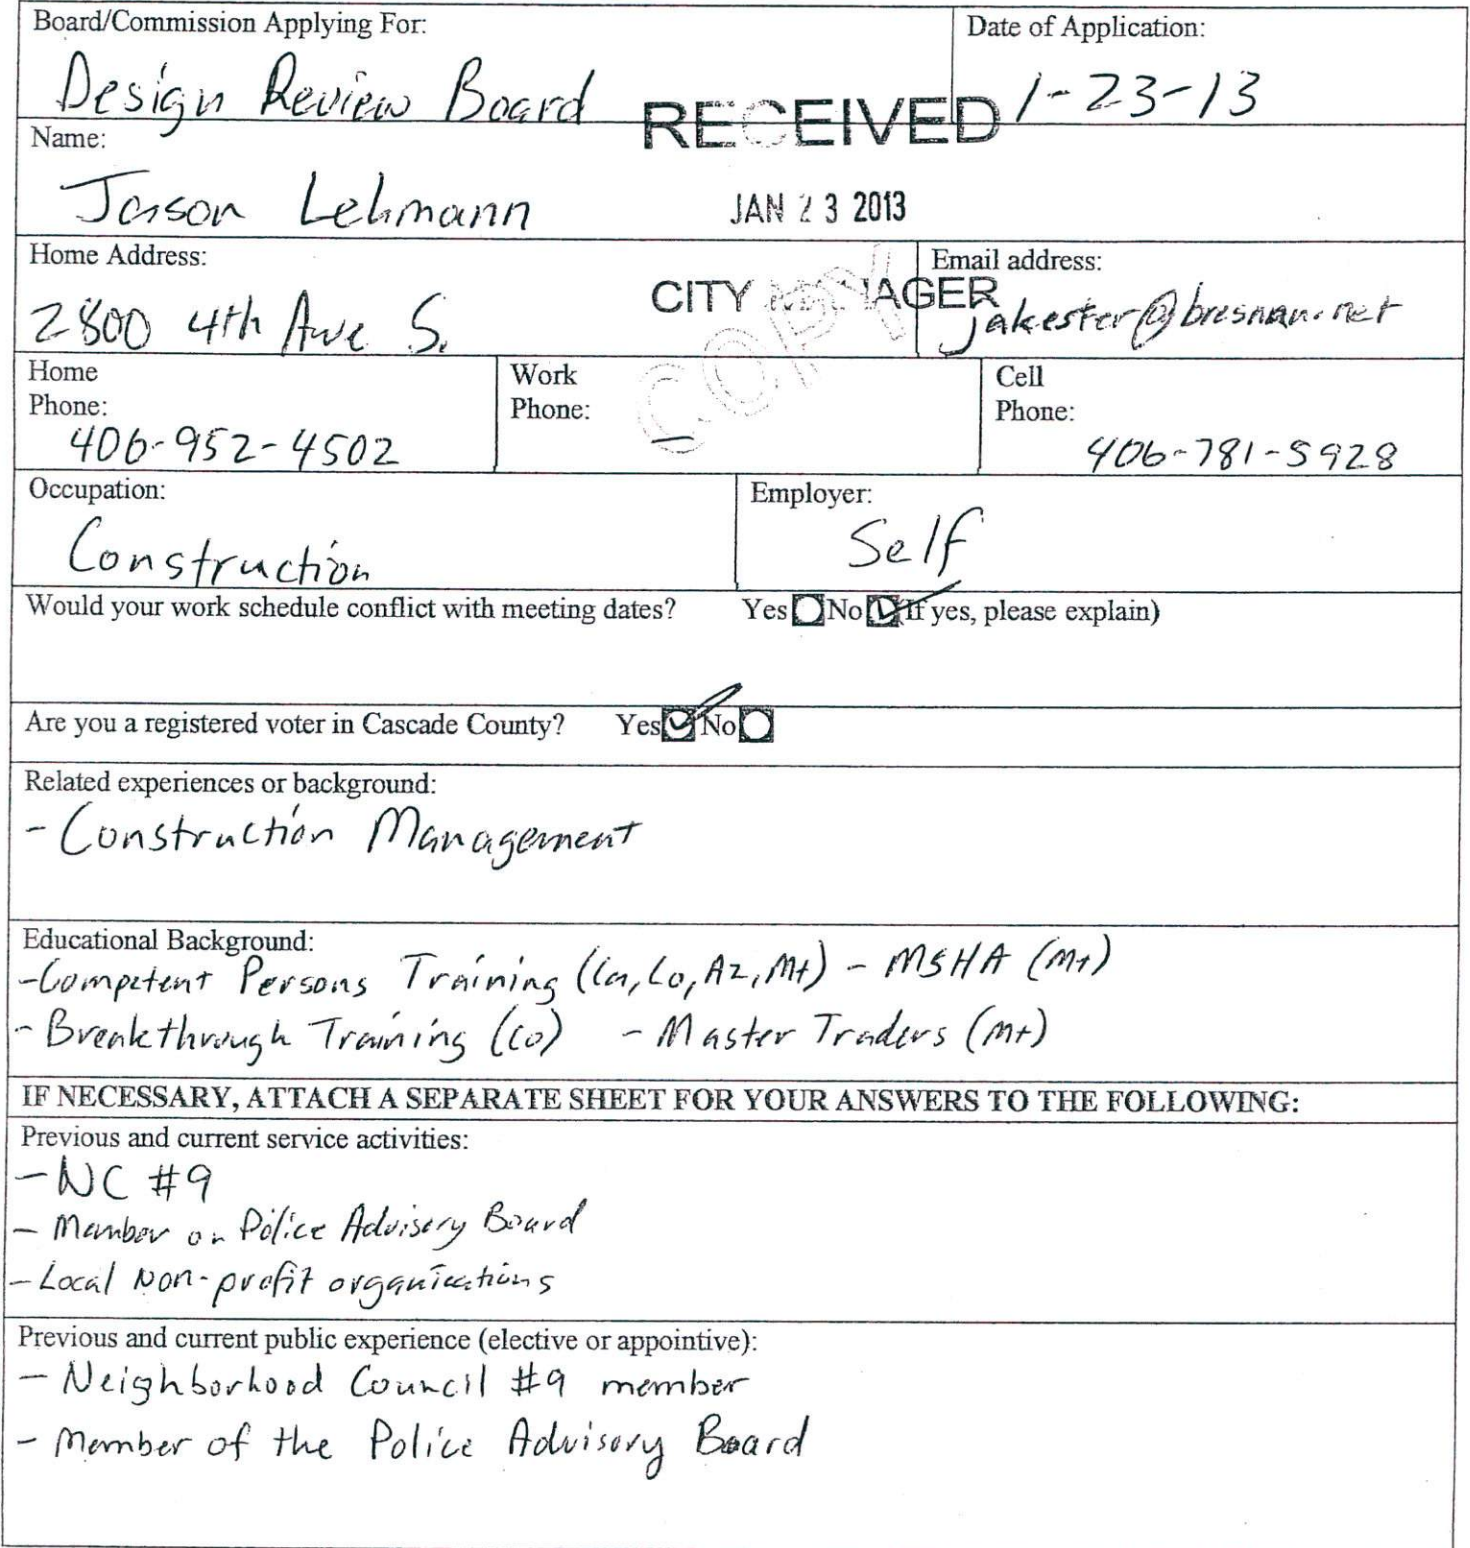 Board/Commission Applying For:
Design Review Board
Date of Application:
1-23-13
RECEIVED
Name:
Jason Lehmann
JAN 23 2013
Home Address:
2800 4th Ave S.
CITY MANAGER
COPY
Email address:
jakester@bresnan.net
Home
Phone:
406-952-4502
Work
Phone:
—
Cell
Phone:
406-781-5928
Occupation:
Construction
Employer:
Self
Would your work schedule conflict with meeting dates? Yes No (If yes, please explain)
Are you a registered voter in Cascade County? Yes No
Related experiences or background:
- Construction Management
Educational Background:
- Competent Persons Training (Ca, Co, Az, Mt) - MSHA (Mt)
- Breakthrough Training (Co) - Master Traders (Mt)
IF NECESSARY, ATTACH A SEPARATE SHEET FOR YOUR ANSWERS TO THE FOLLOWING:
Previous and current service activities:
- NC #9
- Member on Police Advisory Board
- Local Non-profit organizations
Previous and current public experience (elective or appointive):
- Neighborhood Council #9 member
- Member of the Police Advisory Board